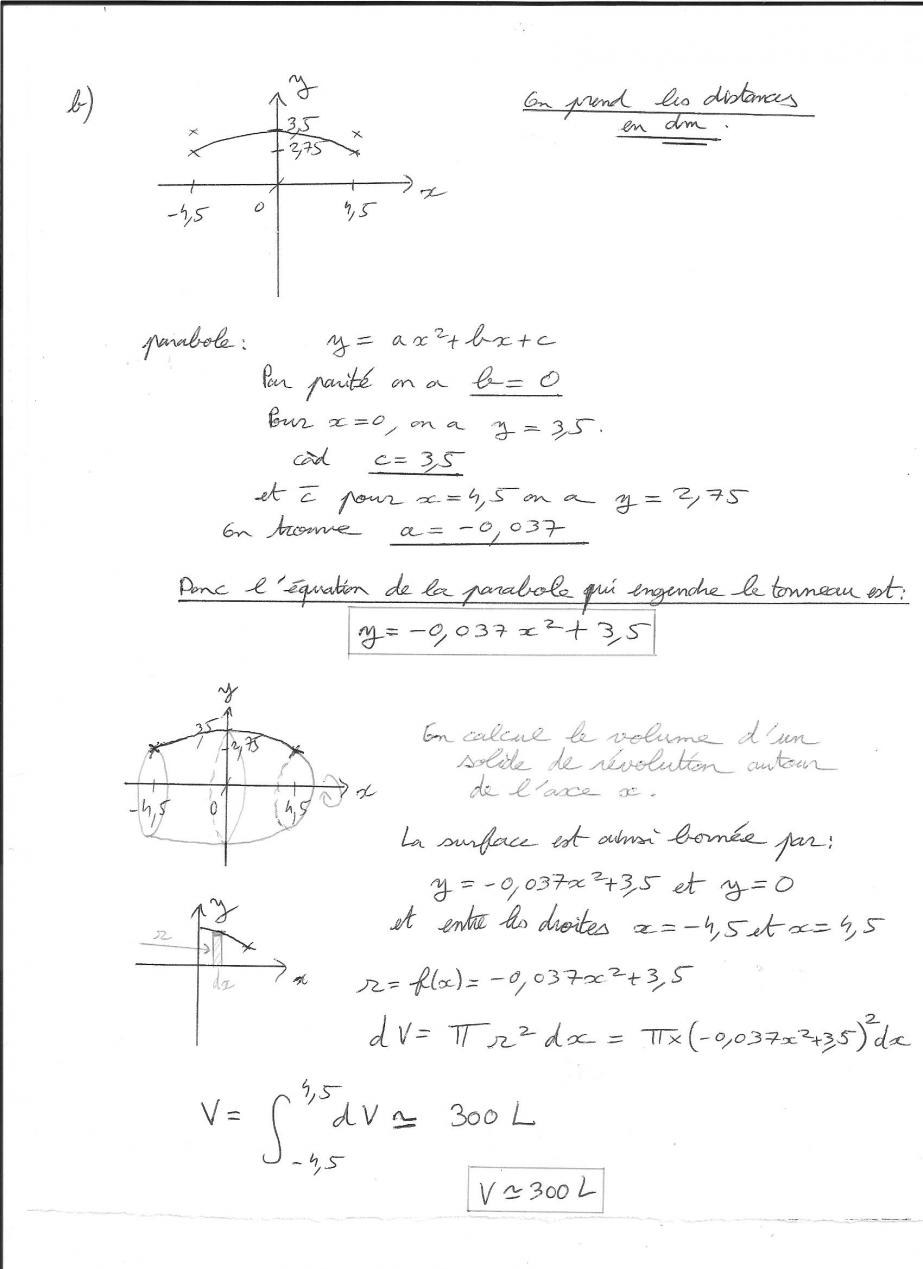 b)
On prend les distances
en dm.
y
3,5
2,75
-4,5
0
4,5
x
parabole: y = ax²+bx+c
Par parité on a b = 0
Pour x=0, on a y = 3,5.
càd c = 3,5
et c̄ pour x=4,5 on a y = 2,75
On trouve a = -0,037
Donc l'équation de la parabole qui engendre le tonneau est:
y = -0,037x²+3,5
y
3,5
2,75
-4,5
0
4,5
x
On calcul le volume d'un
solide de révolution autour
de l'axe x.
La surface est ainsi bornée par:
y = -0,037x²+3,5 et y=0
et entre les droites x=-4,5 et x=4,5
y
r
dx
x
r = f(x) = -0,037x²+3,5
dV = π r² dx = π×(-0,037x²+3,5)²dx
V = ∫_{-4,5}^{4,5} dV ≃ 300 L
V ≃ 300 L